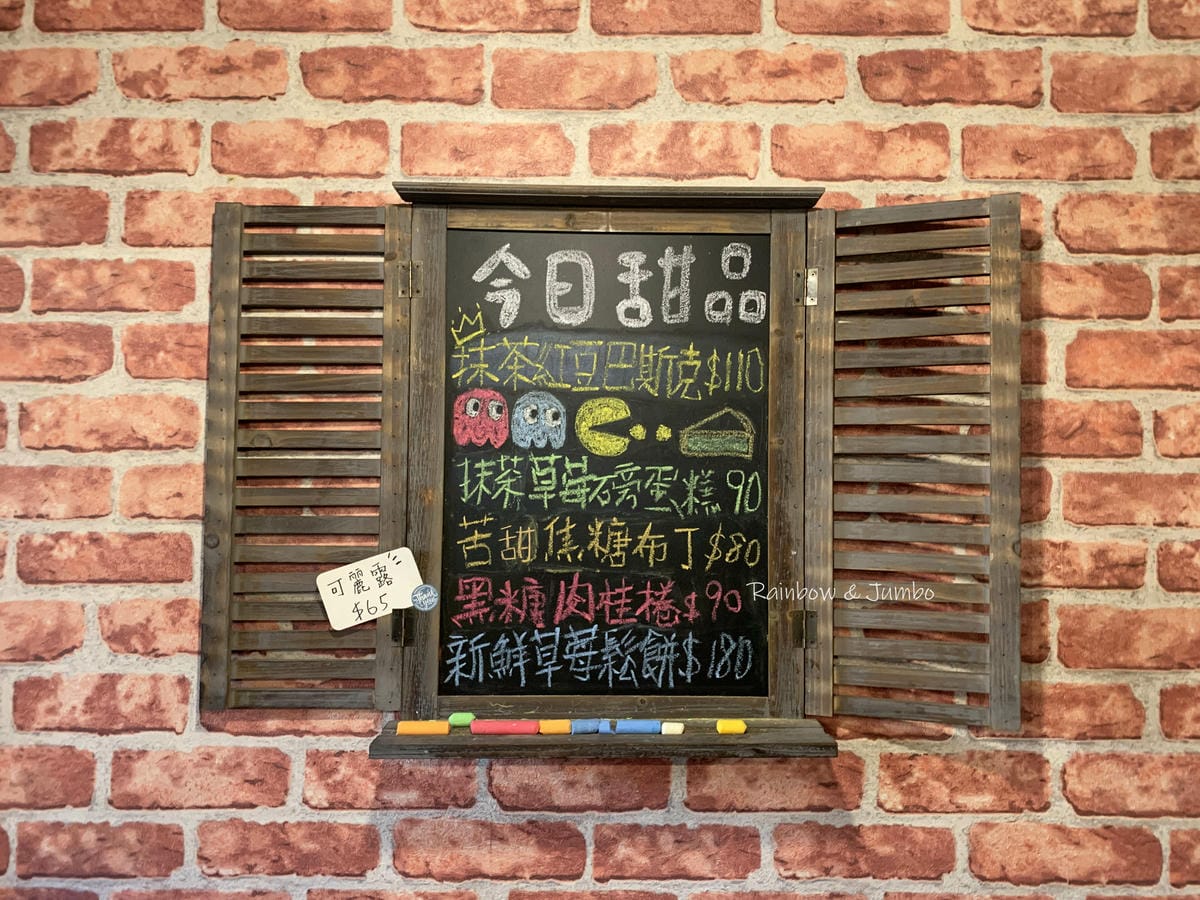 今日甜品
抹茶紅豆巴斯克$110
抹茶草莓磅蛋糕90
苦甜焦糖布丁$80
黑糖肉桂捲$90
新鮮草莓鬆餅$180
可麗露
$65
Thank you
Rainbow & Jumbo